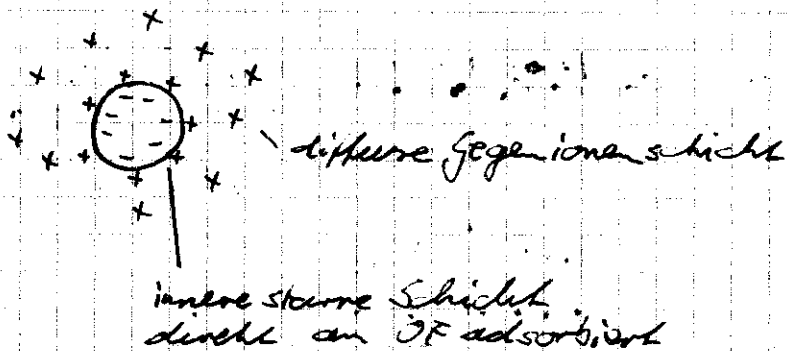 diffuse Gegenionenschicht
innere starre Schicht
direkt an OF adsorbiert